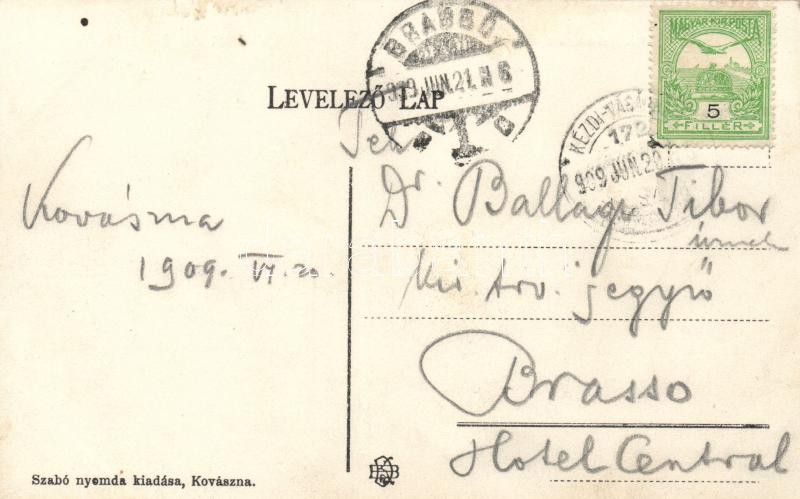 BRASSÓ
909 JUN. 21. N 6
MAGYAR KIR. POSTA
5
FILLÉR
LEVELEZŐ LAP
KÉZDI-VÁSÁR
172
909 JUN. 20
Tek
Dr. Ballagi Tibor
úrnak
kir. trv. jegyző
Brasso
Hotel Central
Kovászna
1909. VI. 20.
Szabó nyomda kiadása, Kovászna.